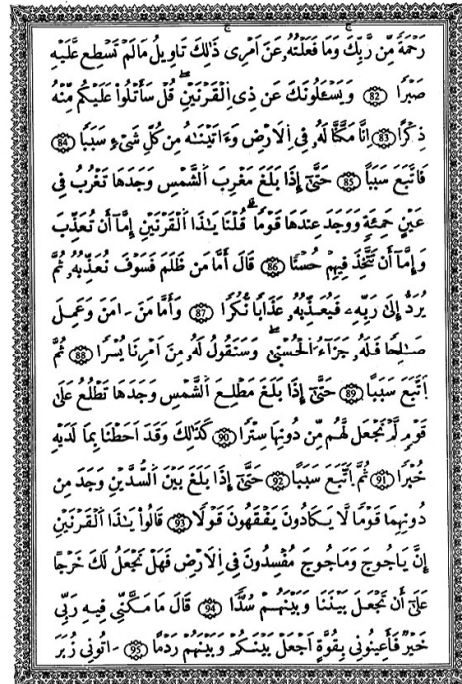 رَحْمَةً مِّن رَّبِّكَ وَمَا فَعَلْتُهُۥ عَنَ اَمْرِى ذَٰلِكَ تَاوِيلُ مَا لَمْ تَسْطِع عَّلَيْهِ
صَبْرًا 82 وَيَسْـَٔلُونَكَ عَن ذِى اِلْقَرْنَيْنِ قُلْ سَأَتْلُواْ عَلَيْكُم مِّنْهُ
ذِكْرًا 83 اِنَّا مَكَّنَّا لَهُۥ فِى اِلَارْضِ وَءَاتَيْنَٰهُ مِن كُلِّ شَىْءٍ سَبَبًا 84
فَاتَّبَعَ سَبَبًا 85 حَتَّىٰٓ إِذَا بَلَغَ مَغْرِبَ اَلشَّمْسِ وَجَدَهَا تَغْرُبُ فِى
عَيْنٍ حَمِئَةٍ وَوَجَدَ عِندَهَا قَوْمًا قُلْنَا يَٰذَا اَلْقَرْنَيْنِ إِمَّآ أَن تُعَذِّبَ
وَإِمَّآ أَن تَتَّخِذَ فِيهِمْ حُسْنًا 86 قَالَ أَمَّا مَن ظَلَمَ فَسَوْفَ نُعَذِّبُهُۥ ثُمَّ
يُرَدُّ إِلَىٰ رَبِّهِۦ فَيُعَذِّبُهُۥ عَذَابًا نُّكُرًا 87 وَأَمَّا مَنَ ـ امَنَ وَعَمِلَ
صَٰلِحًا فَلَهُۥ جَزَآءُ اُلْحُسْنَىٰ وَسَنَقُولُ لَهُۥ مِنَ اَمْرِنَا يُسْرًا 88 ثُمَّ
اَتَّبَعَ سَبَبًا 89 حَتَّىٰٓ إِذَا بَلَغَ مَطْلِعَ اَلشَّمْسِ وَجَدَهَا تَطْلُعُ عَلَىٰ
قَوْمٍ لَّمْ نَجْعَل لَّهُم مِّن دُونِهَا سِتْرًا 90 كَذَٰلِكَ وَقَدَ اَحَطْنَا بِمَا لَدَيْهِ
خُبْرًا 91 ثُمَّ اَتَّبَعَ سَبَبًا 92 حَتَّىٰٓ إِذَا بَلَغَ بَيْنَ اَلسُّدَّيْنِ وَجَدَ مِن
دُونِهِمَا قَوْمًا لَّا يَكَادُونَ يَفْقَهُونَ قَوْلًا 93 قَالُواْ يَٰذَا اَلْقَرْنَيْنِ
إِنَّ يَاجُوجَ وَمَاجُوجَ مُفْسِدُونَ فِى اِلَارْضِ فَهَلْ نَجْعَلُ لَكَ خَرْجًا
عَلَىٰٓ أَن تَجْعَلَ بَيْنَنَا وَبَيْنَهُمْ سُدًّا 94 قَالَ مَا مَكَّنِّى فِيهِ رَبِّى
خَيْرٌ فَأَعِينُونِى بِقُوَّةٍ اَجْعَلْ بَيْنَكُمْ وَبَيْنَهُمْ رَدْمًا 95 ـ اتُونِى زُبَرَ